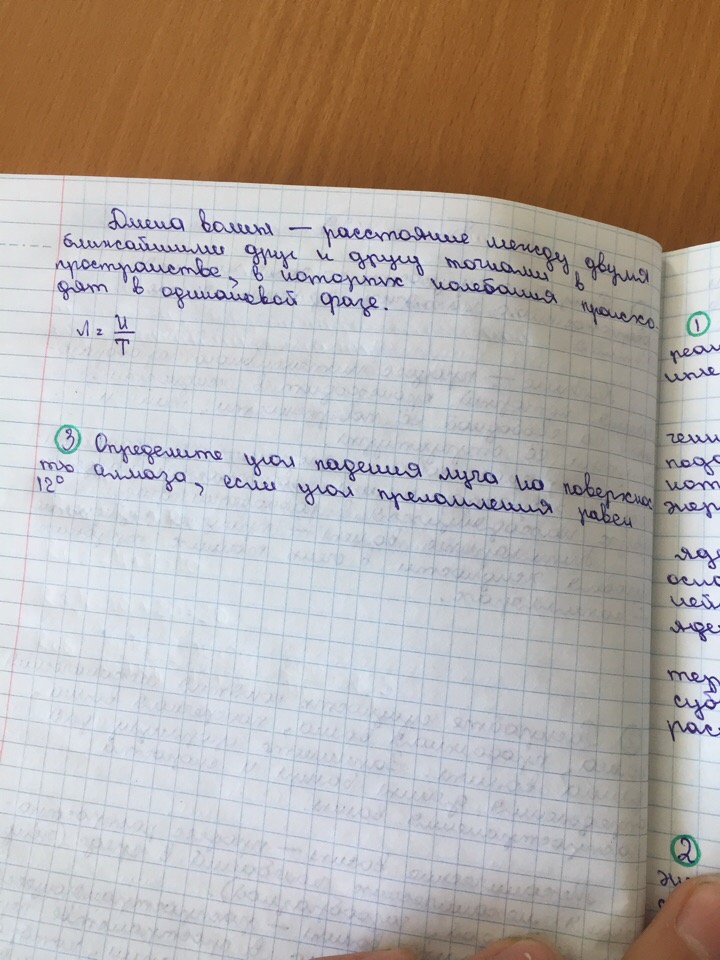 Длина волны — расстояние между двумя
ближайшими друг к другу точками в
пространстве, в которых колебания происхо
дят в одинаковой фазе.
λ = u/T
③ Определите угол падения луча на поверхнос
тью алмаза, если угол преломления равен
12°
①
реак
ядe
осно
ней
яде
тер
суб
рас
②